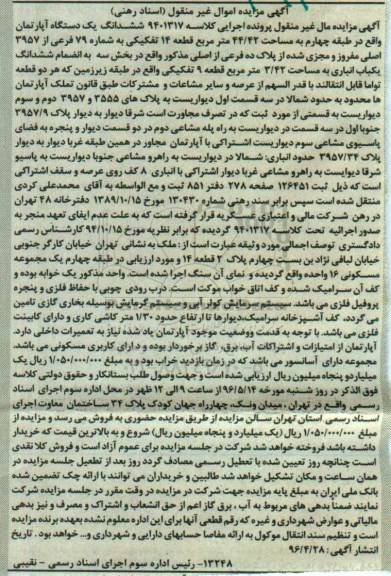 آگهی مزایده اموال غیر منقول (اسناد رهنی)
آگهی مزایده مال غیر منقول پرونده اجرایی کلاسه ۹۴۰۱۳۱۷ ششدانگ یک دستگاه آپارتمان
واقع در طبقه چهارم به مساحت ۴۴/۴۲ متر مربع قطعه ۱۴ تفکیکی به شماره ۷۹ فرعی از ۳۹۵۷
اصلی مفروز و مجزی شده از پلاک ده فرعی از اصلی مذکور واقع در بخش سه به انضمام ششدانگ
یکباب انباری به مساحت ۳/۴۲ متر مربع قطعه ۹ تفکیکی واقع در طبقه زیرزمین که هر دو قطعه
تواما قابل انتقالند با قدر السهم از عرصه و سایر مشاعات و مشترکات طبق قانون تملک آپارتمان
ها محدود به حدود شمالا در سه قسمت اول دیواریست به پلاک های ۳۵۵۵ و ۳۹۵۷ دوم و سوم
دیواریست به قسمتی از مورد ثبت که در تصرف مجاورت است شرقا دیوار به دیوار پلاک ۳۹۵۷/۹
جنوبا اول در سه قسمت در دیواریست به راه پله مشاعی دوم در دو قسمت دیوار و پنجره به فضای
پاسیوی مشاعی سوم دیواریست اشتراکی با آپارتمان مجاور در همین طبقه غربا دیوار به دیوار
پلاک ۳۹۵۷/۳۴ حدود انباری: شمالا در دیواریست به راهرو مشاعی جنوبا دیواریست به پاسیو
شرقا دیواریست به راهرو مشاعی غربا دیوار اشتراکی با انباری ۸ کف روی عرصه و سقف اشتراکی
است که ذیل ثبت ۱۲۶۴۵۱ صفحه ۲۷۸ دفتر ۸۵۱ ثبت و مع الواسطه به آقای محمدعلی کردی
منتقل شده است سپس برابر سند رهنی شماره ۱۳۰۴۳۰ مورخ ۱۳۸۹/۱۰/۱۵ دفترخانه ۴۸ تهران
در رهن شرکت مالی و اعتباری عسکریه قرار گرفته است که به علت عدم ایفای تعهد منجر به
صدور اجرائیه تحت کلاسه ۹۴۰۱۳۱۷ گردیده که برابر نظریه مورخ ۹۴/۱۰/۱۵ کارشناس رسمی
دادگستری توصف اجمالی مورد وثیقه عبارت است از: ملک به نشانی تهران خیابان کارگر جنوبی
خیابان لبافی نژاد بن بست چهارم پلاک ۲ قطعه ۱۴ و مورد ارزیابی در طبقه چهارم یک مجموعه
مسکونی ۱۶ واحده واقع گردیده و نمای آن سنگ اجرا شده است. واحد مذکور یک خوابه بوده و
کف آن سرامیک شده و کف اتاق خواب موکت است. درب ورودی چوبی با حفاظ فلزی و پنجره
پروفیل فلزی می باشد. سیستم سرمایش کولر آبی و سیستم گرمایش بوسیله بخاری گازی تامین
می گردد. کف آشپزخانه سرامیک، دیوارها تا ارتفاع حدود ۱/۳۰ متر کاشی کاری و دارای کابینت
فلزی می باشد. با توجه به قدمت ووضعیت موجود آپارتمان یاد شده نیاز به تعمیرات داخلی دارد.
آپارتمان از امتیازات و اشتراکات آب، برق، گاز برخوردار بوده و دارای کاربری مسکونی می باشد.
مجموعه دارای آسانسور می باشد که در زمان بازدید خراب بود و به مبلغ ۱/۰۵۰/۰۰۰/۰۰۰ ریال یک
میلیاردو پنجاه میلیون ریال ارزیابی شده است و جهت وصول طلب بستانکار و حقوق دولتی کلاسه
فوق الذکر در روز شنبه مورخه ۹۶/۵/۱۴ از ساعت ۹ الی ۱۲ ظهر در محل اداره سوم اجرای اسناد
رسمی واقع در تهران، میدان ونک، چهارراه جهان کودک پلاک ۳۴ ساختمان معاونت اجرای
اسناد رسمی استان تهران سالن مزایده از طریق مزایده حضوری به فروش می رسد و مزایده از
مبلغ ۱/۰۵۰/۰۰۰/۰۰۰ ریال (یک میلیارد و پنجاه میلیون ریال) شروع و به بالاترین قیمت که خریدار
داشته باشد فروخته خواهد شد شرکت در جلسه مزایده برای عموم آزاد است و فروش کلا نقدی
است چنانچه روز تعیین شده با تعطیل رسمی مصادف گردد روز بعد از تعطیل جلسه مزایده در
همان ساعت و مکان تشکیل خواهد شد طالبین و خریداران می توانند با ارائه چک تضمین شده
بانک ملی ایران به مبلغ پایه مزایده جهت شرکت در مزایده در وقت مقرر در جلسه مزایده شرکت
نمایند ضمنا بدهی های مربوط به آب، برق گاز اعم از حق انشعاب و اشتراک و مصرف و نیز بدهی
مالیاتی و عوارض شهرداری و غیره که رقم قطعی آنها برای این اداره معلوم نشده بعهده برنده مزایده
است و تنظیم سند انتقال موکول به ارائه مفاصا حسابهای دارایی و شهرداری و... خواهد بود. تاریخ
انتشار آگهی: ۹۶/۴/۲۸
۱۳۲۴۸- رئیس اداره سوم اجرای اسناد رسمی - نقیبی